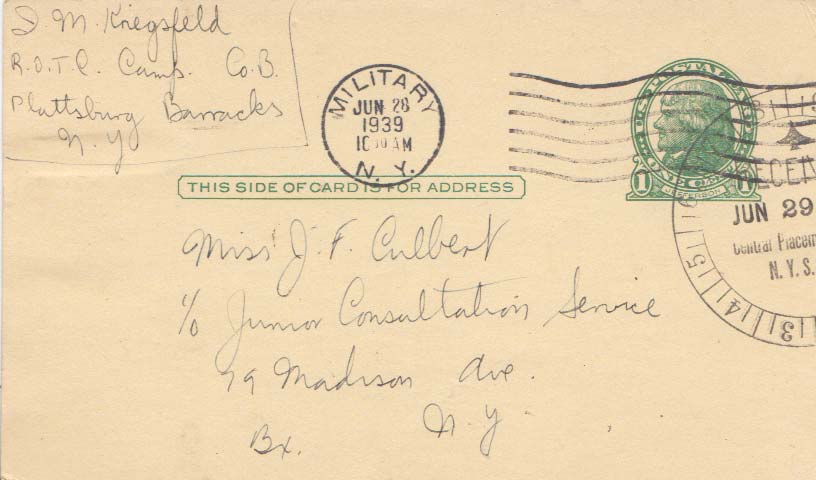 I M Kriegsfeld
R.O.T.C. Camp. Co.B.
Plattsburg Barracks
N.Y
MILITARY
JUN 28
1939
10 30 AM
N. Y.
U.S. POSTAL
1 ONE CENT 1
JEFFERSON
THIS SIDE OF CARD IS FOR ADDRESS
JUN 29
Central Placem
N.Y.S.
3 4 5 6
Miss J. F. Culbert
c/o Junior Consultation Service
79 Madison Ave.
N Y
Bx.